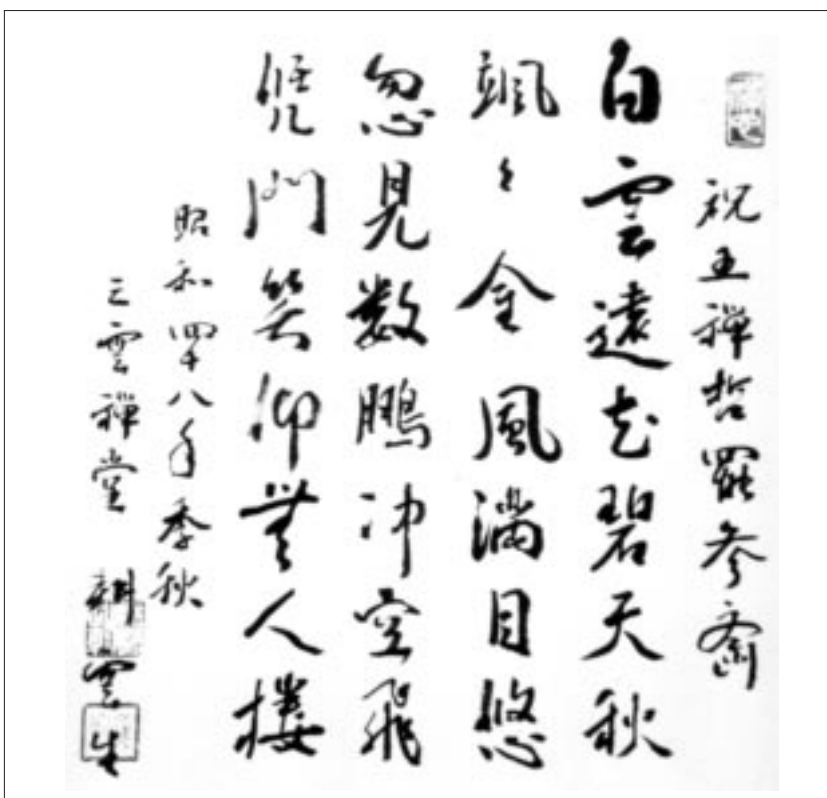 祝五禅哲罷参斎
白雲遠去碧天秋
颯々金風満目悠
忽見数鵬冲空飛
兜門笑仰無人楼
昭和四十八年季秋
三雲禅堂 耕雲生